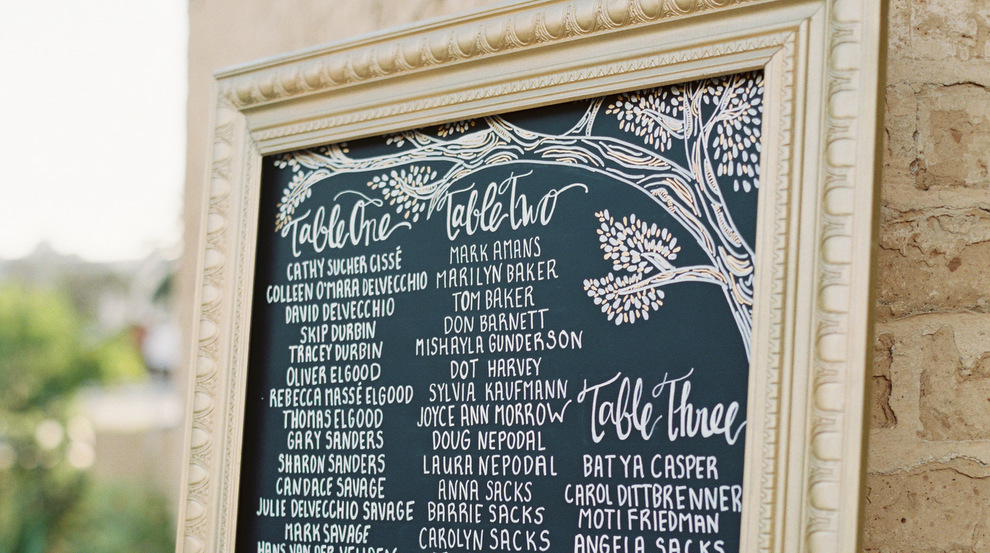 Table One
CATHY SUCHER CISSÉ
COLLEEN O'MARA DELVECCHIO
DAVID DELVECCHIO
SKIP DURBIN
TRACEY DURBIN
OLIVER ELGOOD
REBECCA MASSÉ ELGOOD
THOMAS ELGOOD
GARY SANDERS
SHARON SANDERS
CANDACE SAVAGE
JULIE DELVECCHIO SAVAGE
MARK SAVAGE
HANS VAN DER
Table Two
MARK AMANS
MARILYN BAKER
TOM BAKER
DON BARNETT
MISHAYLA GUNDERSON
DOT HARVEY
SYLVIA KAUFMANN
JOYCE ANN MORROW
DOUG NEPODAL
LAURA NEPODAL
ANNA SACKS
BARRIE SACKS
CAROLYN SACKS
Table Three
BATYA CASPER
CAROL DITTBRENNER
MOTI FRIEDMAN
ANGELA SACKS